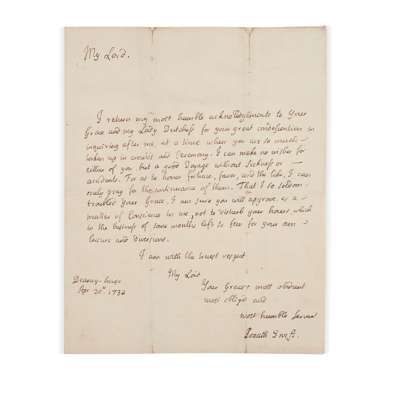 My Lord.
I return my most humble acknoledgments to Your
Grace and my Lady Dutchess for your great condescention in
inquiring after me, at a time when you are so much
taken up in crowds and Ceremony. I can make no wishes for
either of you but a good Voyage without Sickness or
accidents. For as to honor, fortune, favor, and the like, I can
only pray for the continuance of them. That I so seldom
trouble Your Grace, I am sure you will approve, as a
matter of Conscience in me, not to disturb your hours which
in the business of some months left so few for your own
leisure and Diversions.
I am with the truest respect
My Lord
Your Grace's most obedient
most obliged and
most humble Servant
Jonath Swift.
Deanery-house
1734